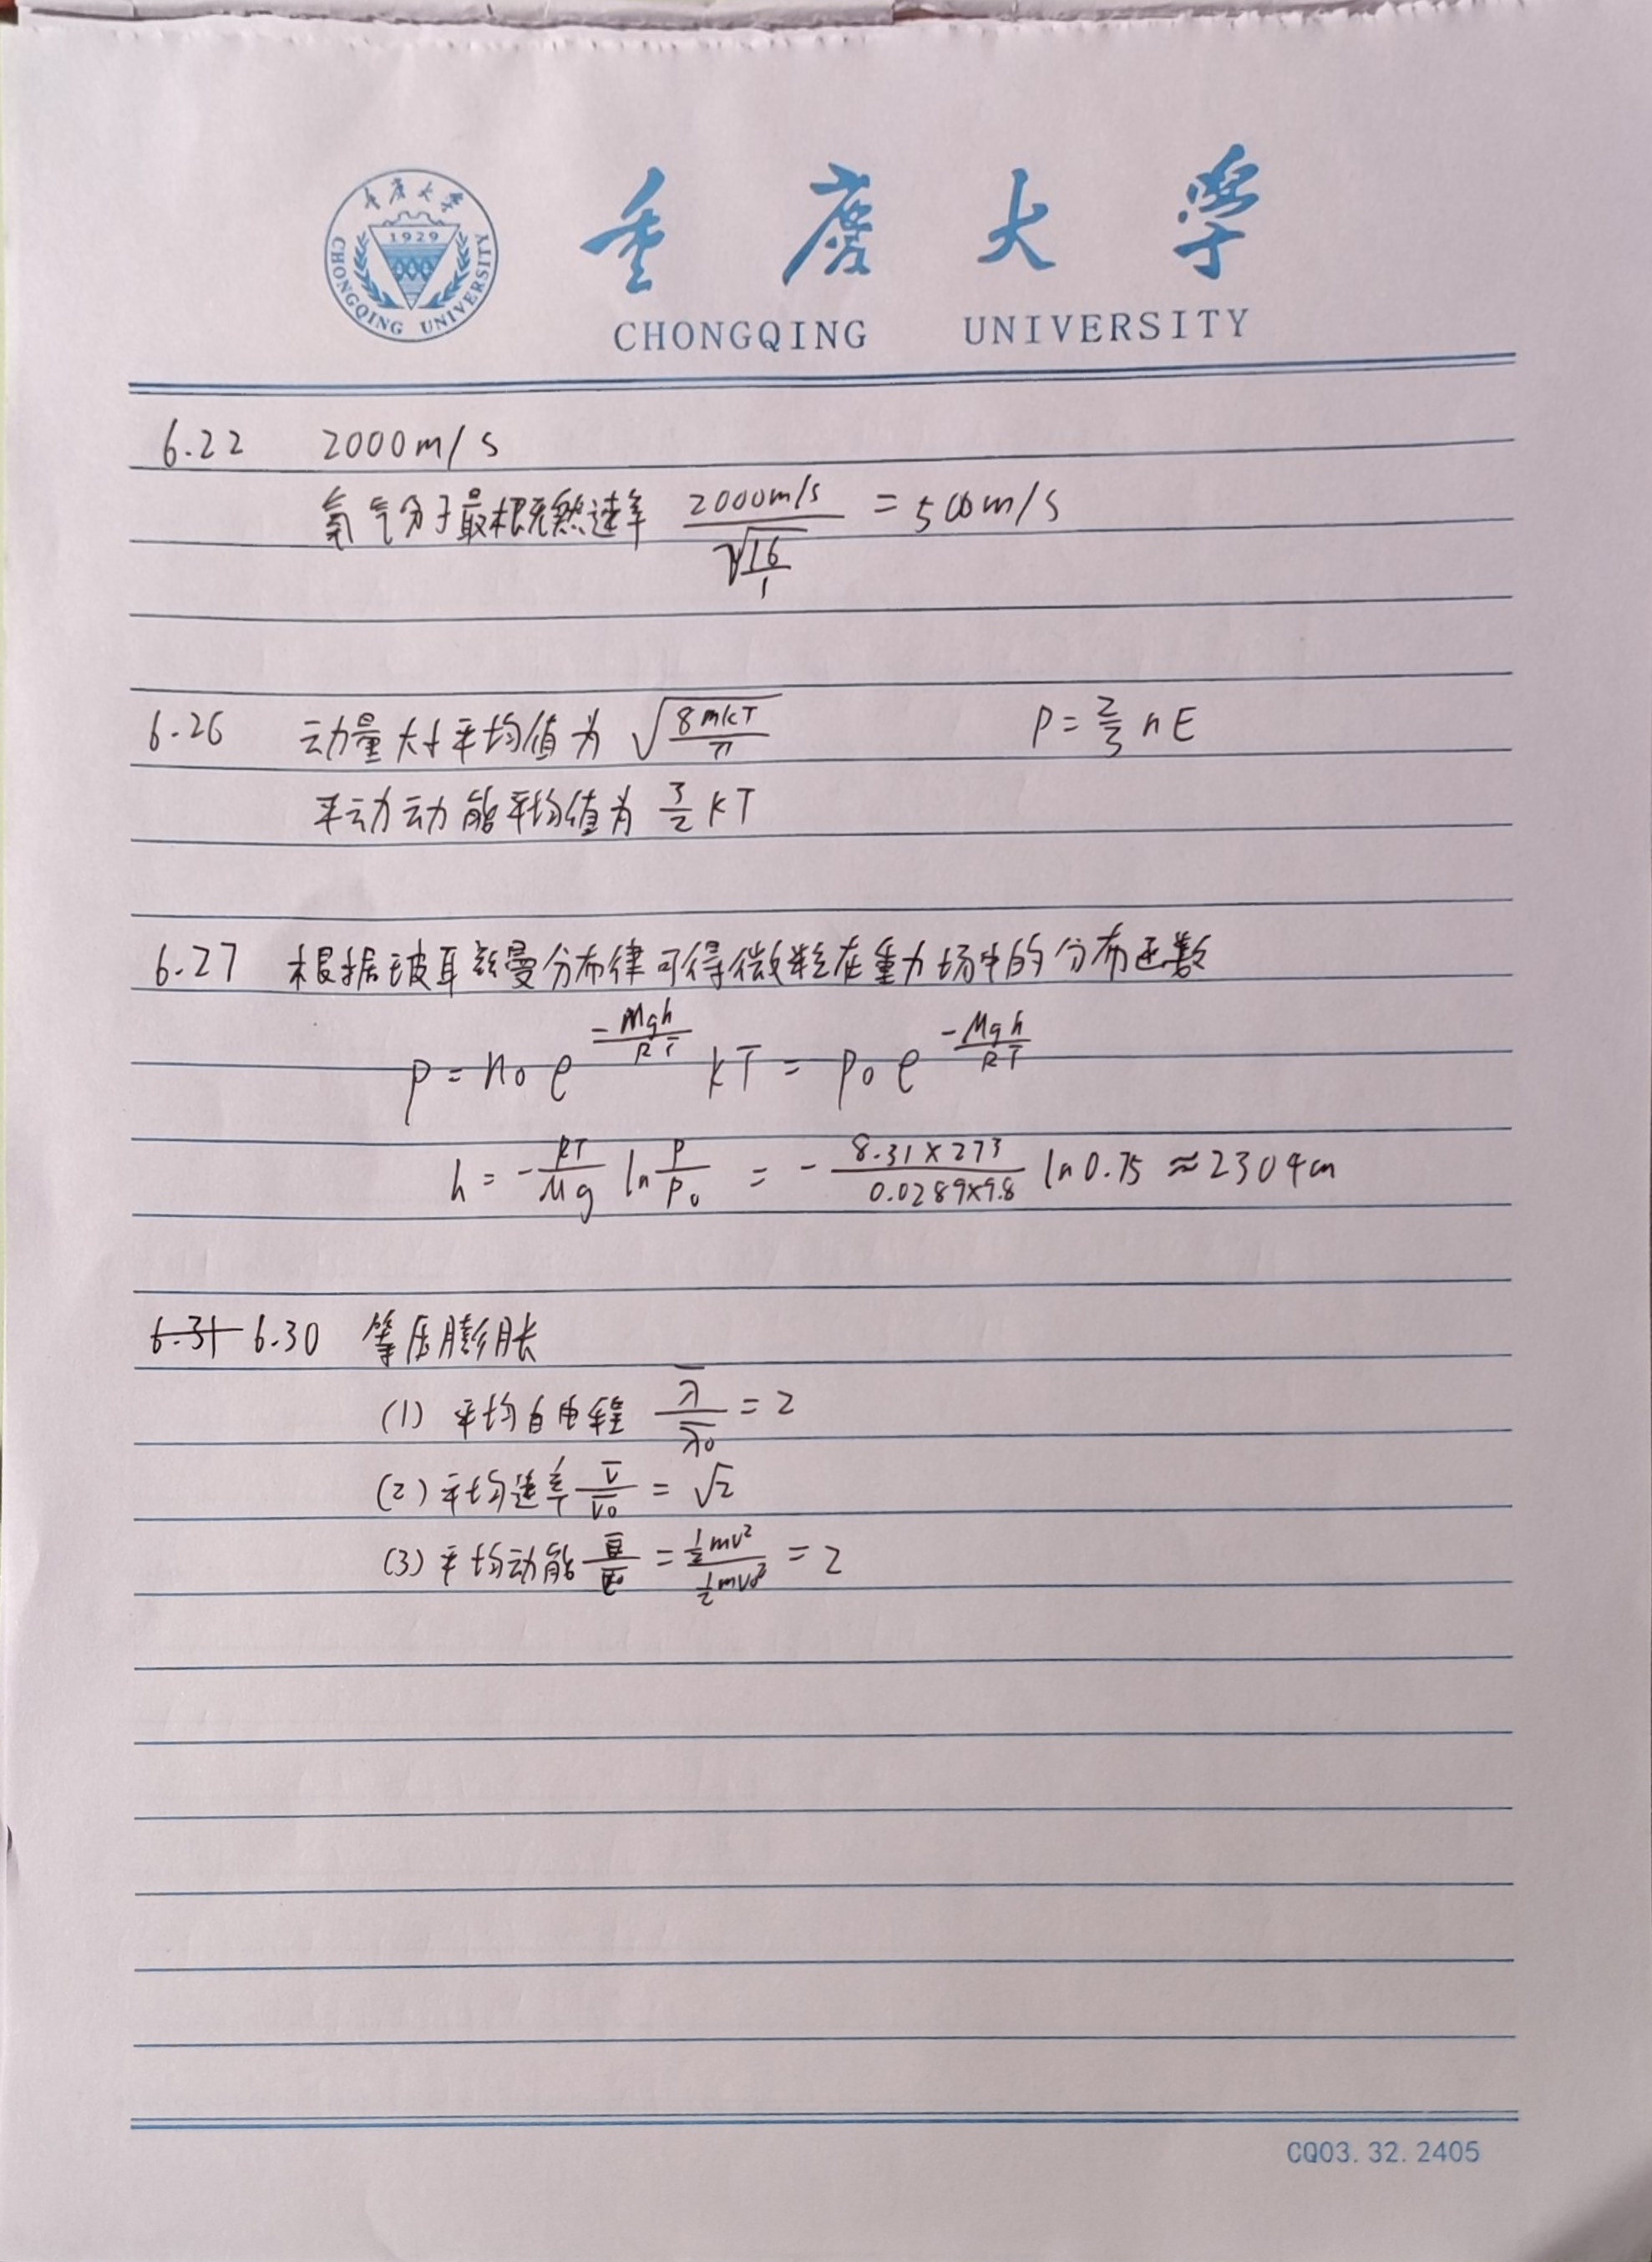 重庆大学
1929
CHONGQING UNIVERSITY
重庆大学
CHONGQING UNIVERSITY
6.22 2000m/s
氧气分子最概然速率 2000m/s / √(16/1) = 500m/s
6.26 动量大小平均值为 √(8mkT/π) P = 2/3 n E
平动动能平均值为 3/2 kT
6.27 根据玻耳兹曼分布律可得微粒在重力场中的分布函数
P = n₀ e^(-Mgh/RT) kT = P₀ e^(-Mgh/RT)
h = - RT/Mg ln P/P₀ = - (8.31×273)/(0.0289×9.8) ln 0.75 ≈ 2304m
6.31 6.30 等压膨胀
(1) 平均自由程 λ̄/λ̄₀ = 2
(2) 平均速率 v̄/v̄₀ = √2
(3) 平均动能 Ē/Ē₀ = ½mv²/½mv₀² = 2
CQ03.32.2405